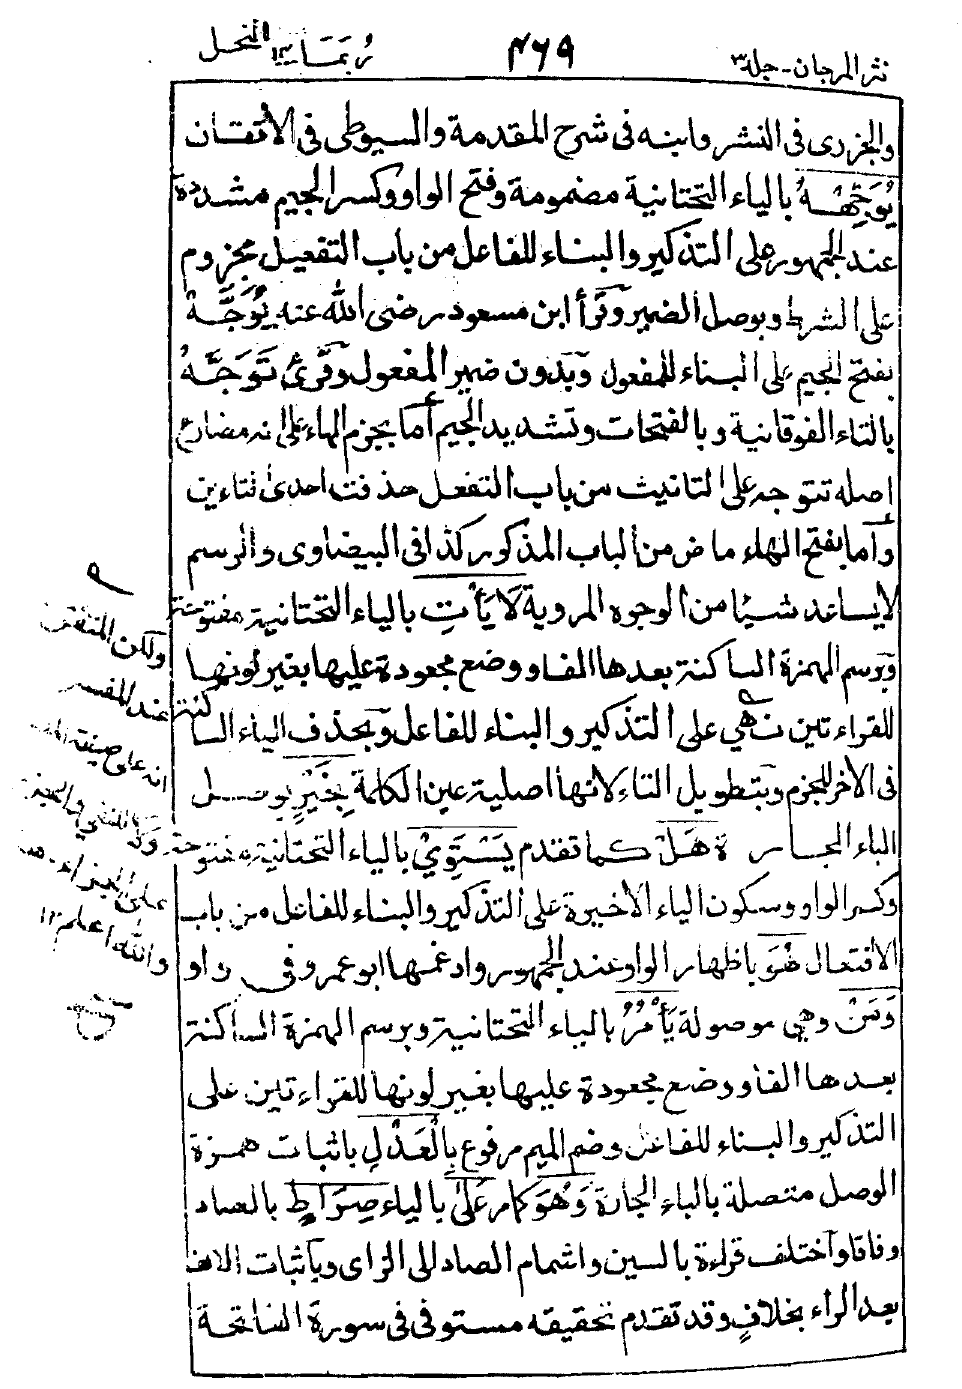 نثر المرجان - جلد ٣
٤٦٩
ربما ١٤ النحل
والجزرى فى النشر وابنه فى شرح المقدمة والسيوطى فى الاتقان
يُوَجِّهْهُ بالياء التحتانية مضمومة وفتح الواو وكسر الجيم مشددة
عند الجمهور على التذكير والبناء للفاعل من باب التفعيل مجزوم
على الشرط وبوصل الضمير وقرأ ابن مسعود رضى الله عنه يُوَجَّهْ
بفتح الجيم على البناء للمفعول وبدون ضمير المفعول وقرئ تَوَجَّهُ
بالتاء الفوقانية وبالفتحات وتشديد الجيم أما بجزم الهاء على انه مضارع
اصله تتوجه على التانيث من باب التفعل حذفت احدى التاءين
وأما بفتح الهاء ماض من الباب المذكور كذا فى البيضاوى والرسم
لايساعد شيئا من الوجوه المروية لَا يَأْتِ بالياء التحتانية مفتوحة
وبرسم الهمزة الساكنة بعدها الفا ووضع مجعودة عليها بغير لونها
للقراءتين نهي على التذكير والبناء للفاعل وبحذف الياء الساكنة
فى الآخر للجزم وبتطويل التاء لانها اصلية عين الكلمة بِخَيْرٍ بوصل
الباء الجارة هَلْ كما تقدم يَسْتَوِيْ بالياء التحتانية مفتوحة
وكسر الواو وسكون الياء الاخيرة على التذكير والبناء للفاعل من باب
الافتعال هُوَ باظهار الواو عند الجمهور وادغمها ابو عمرو فى واو
وَمَنْ وهي موصولة يَأْمُرُ بالياء التحتانية وبرسم الهمزة الساكنة
بعدها الفا ووضع مجعودة عليها بغير لونها للقراءتين على
التذكير والبناء للفاعل وضم الميم مرفوع بِالْعَدْلِ باثبات همزة
الوصل متصلة بالباء الجارة وَهُوَ كما مر عَلٰى بالياء صِرَاطٍ بالصاد
وفاقا واختلف قراءة بالسين واشمام الصاد الى الزاى وباثبات الالف
بعد الراء بخلاف وقد تقدم تحقيقه مستوفى فى سورة الفاتحة
ولكن المتفق
عند المفسر
انه على صيغة
على الجزاء
والله اعلم ١٢